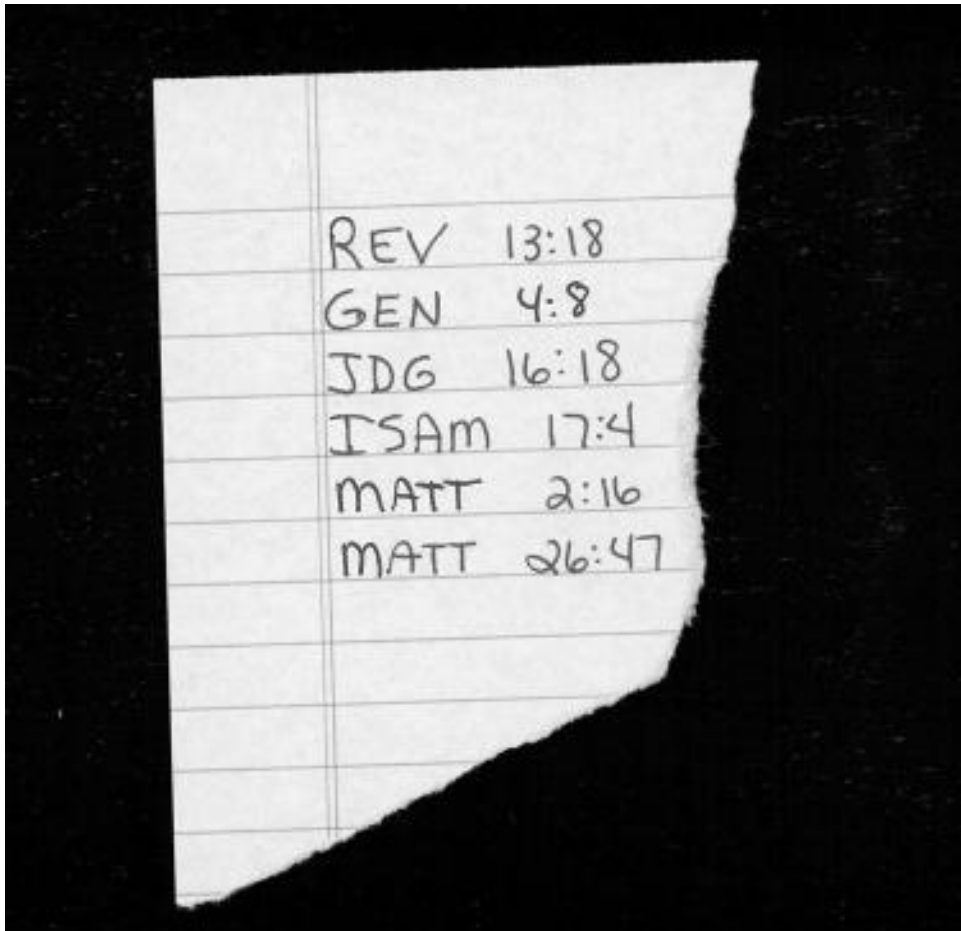 REV 13:18
GEN 4:8
JDG 16:18
ISAM 17:4
MATT 2:16
MATT 26:47